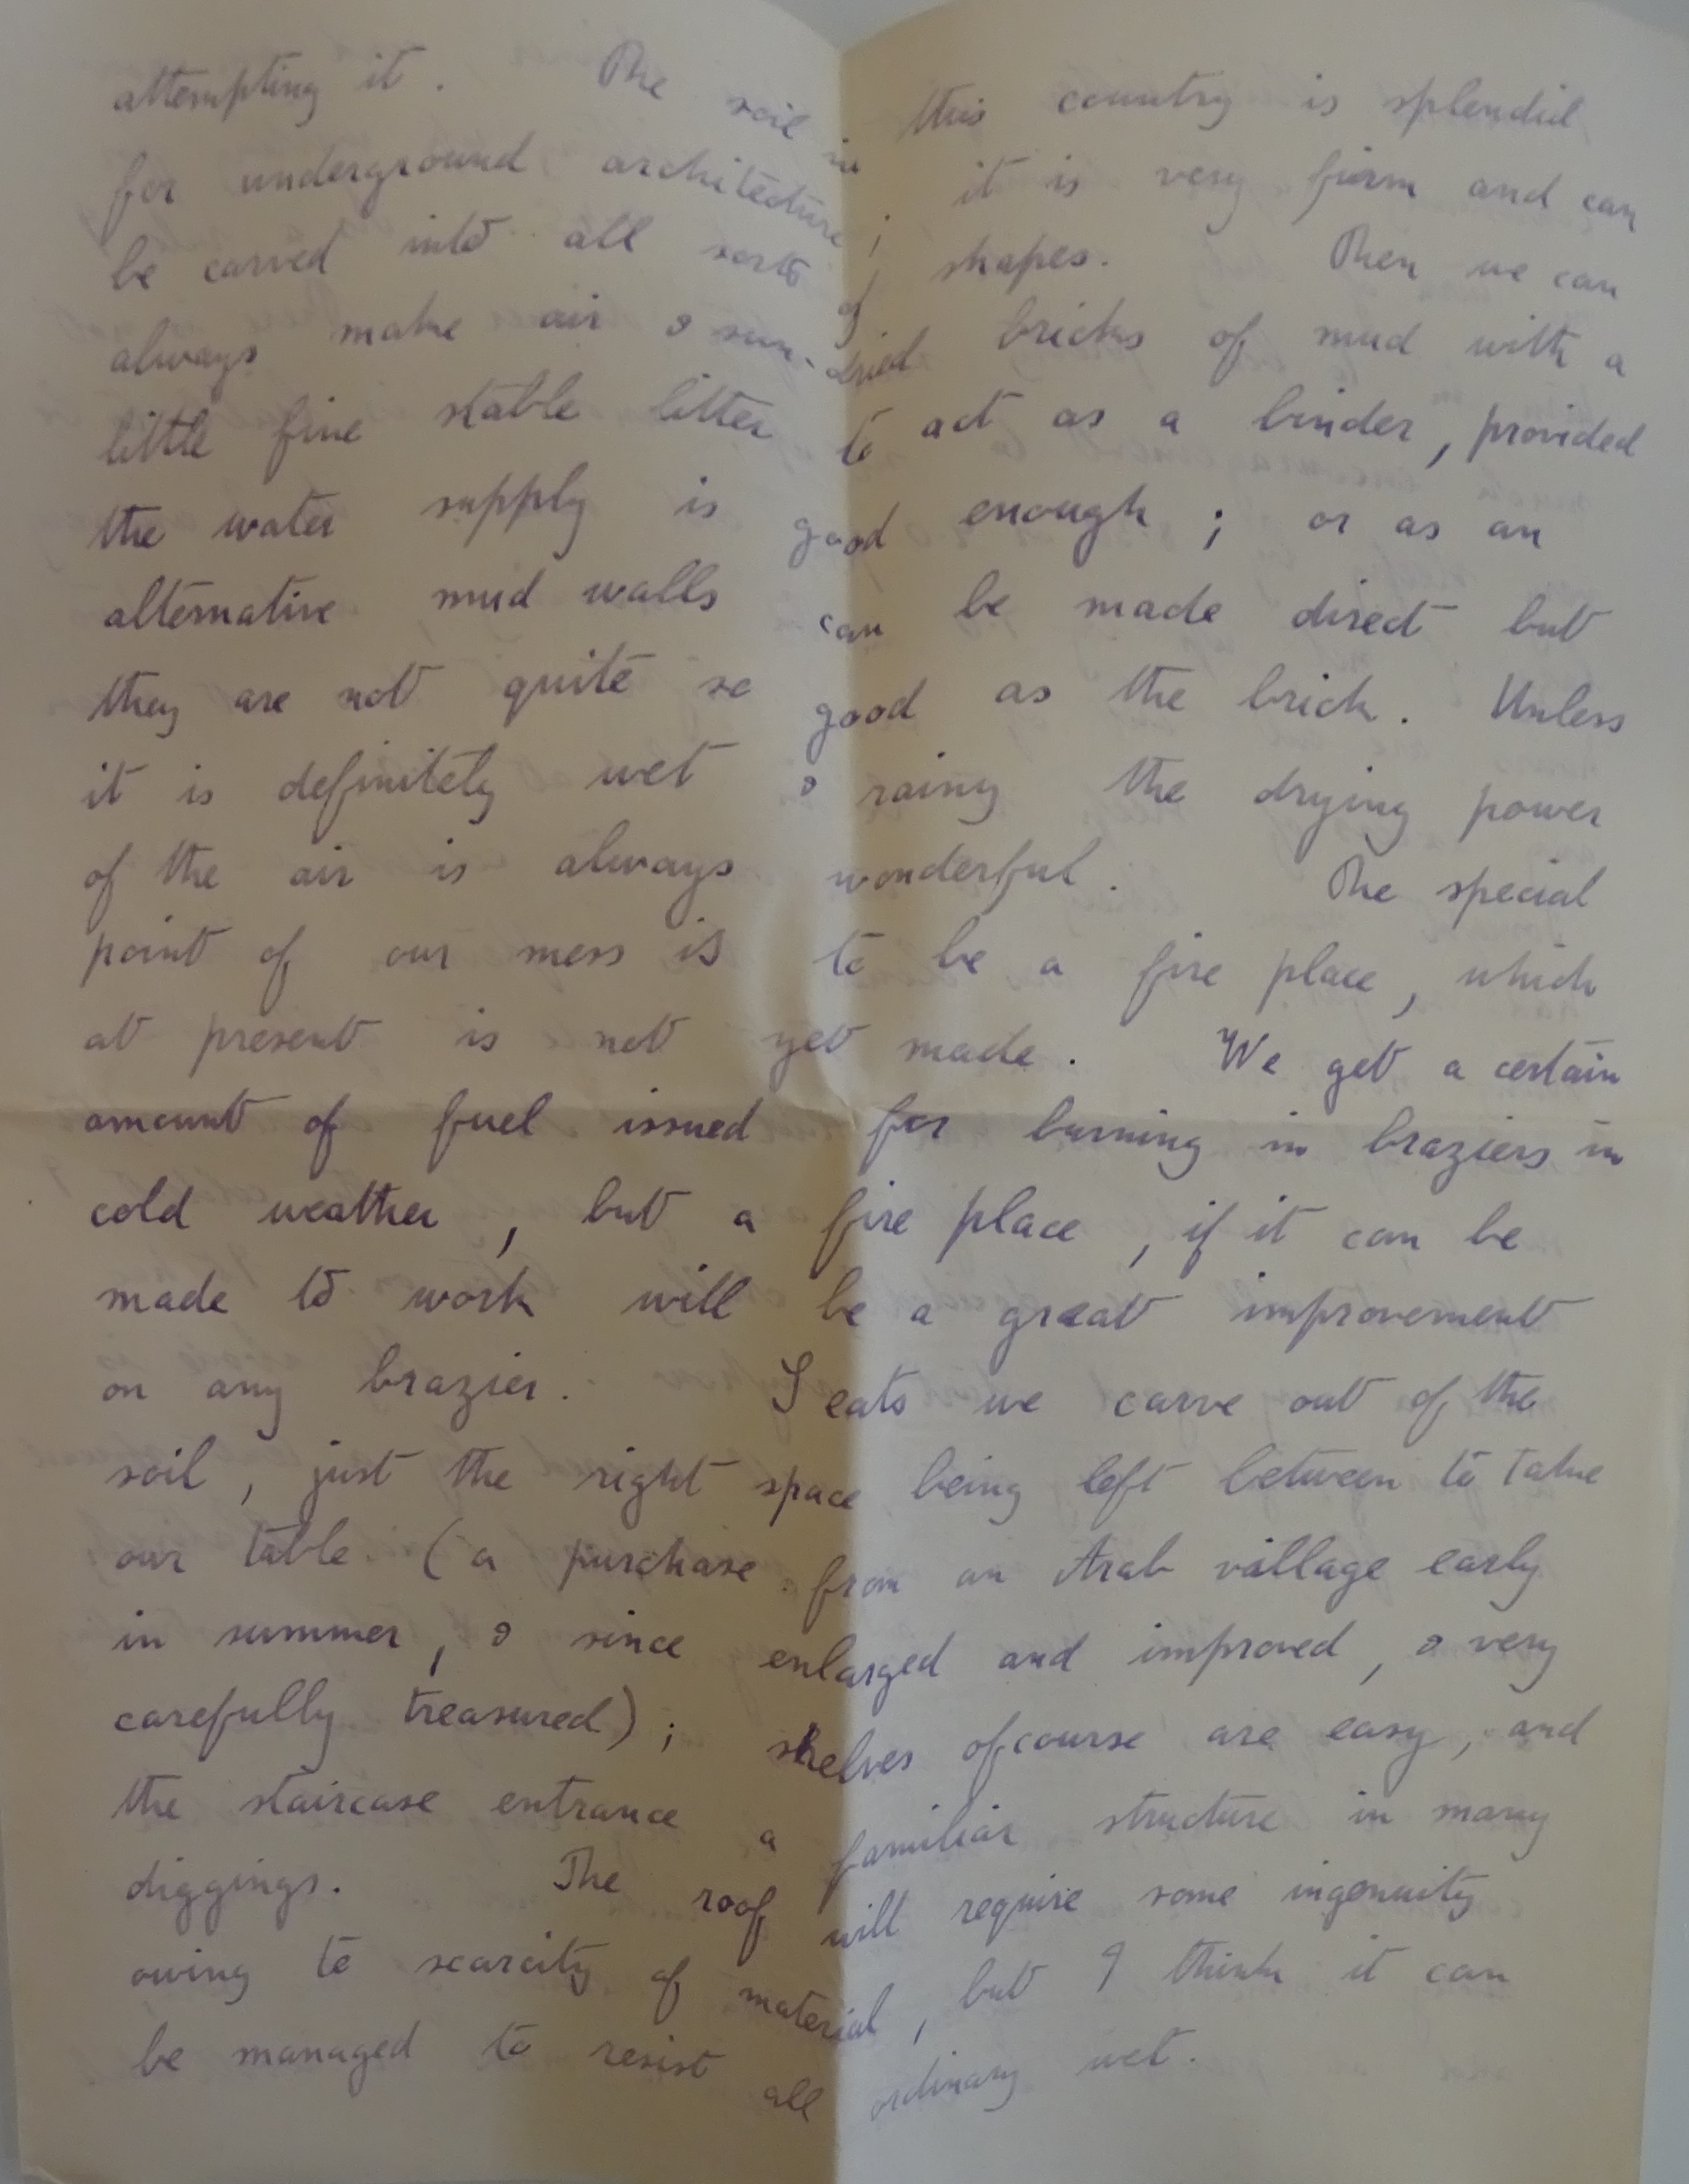 attempting it. The soil in this country is splendid
for underground architecture; it is very firm and can
be carved into all sorts of shapes. Then we can
always make air & sun-dried bricks of mud with a
little fine stable litter to act as a binder, provided
the water supply is good enough; or as an
alternative mud walls can be made direct but
they are not quite so good as the brick. Unless
it is definitely wet & rainy the drying power
of the air is always wonderful. The special
point of our mess is to be a fire place, which
at present is not yet made. We get a certain
amount of fuel issued for burning in braziers in
cold weather, but a fire place, if it can be
made to work will be a great improvement
on any brazier. Seats we carve out of the
soil, just the right space being left between to take
our table (a purchase from an Arab village early
in summer, & since enlarged and improved, & very
carefully treasured); shelves ofcourse are easy, and
the staircase entrance a familiar structure in many
diggings. The roof will require some ingenuity
owing to scarcity of material, but I think it can
be managed to resist all ordinary wet.